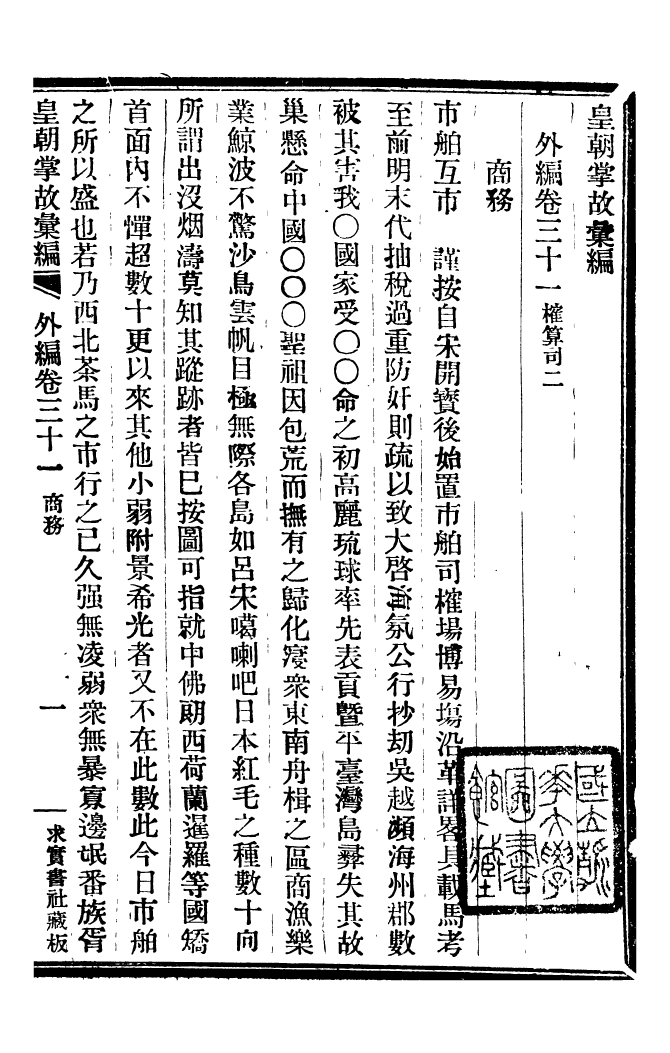 皇朝掌故彙編
外編卷三十一 榷算司二
商務
市舶互市 謹按自宋開寶後始置市舶司榷場博易場沿革詳畧具載馬考
至前明末代抽稅過重防奸則疏以致大啓海氛公行抄刧吳越瀕海州郡數
被其害我〇國家受〇〇命之初高麗琉球率先表貢暨平臺灣島彝失其故
巢懸命中國〇〇〇聖祖因包荒而撫有之歸化寖衆東南舟楫之區商漁樂
業鯨波不驚沙鳥雲帆目極無際各島如呂宋噶喇吧日本紅毛之種數十向
所謂出沒烟濤莫知其蹤跡者皆已按圖可指就中佛朗西荷蘭暹羅等國矯
首面內不憚超數十更以來其他小弱附景希光者又不在此數此今日市舶
之所以盛也若乃西北茶馬之市行之已久强無凌弱衆無暴寡邊氓番族胥
皇朝掌故彙編 外編卷三十一 商務 一 求實書社藏板
國立
華大學
圖書
館藏